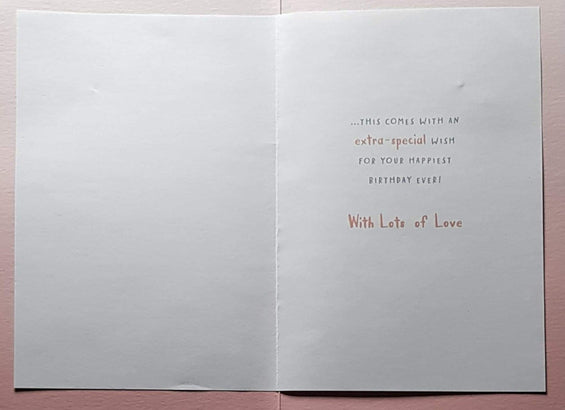 ...THIS COMES WITH AN
extra-special WISH
FOR YOUR HAPPIEST
BIRTHDAY EVER!
With Lots of Love